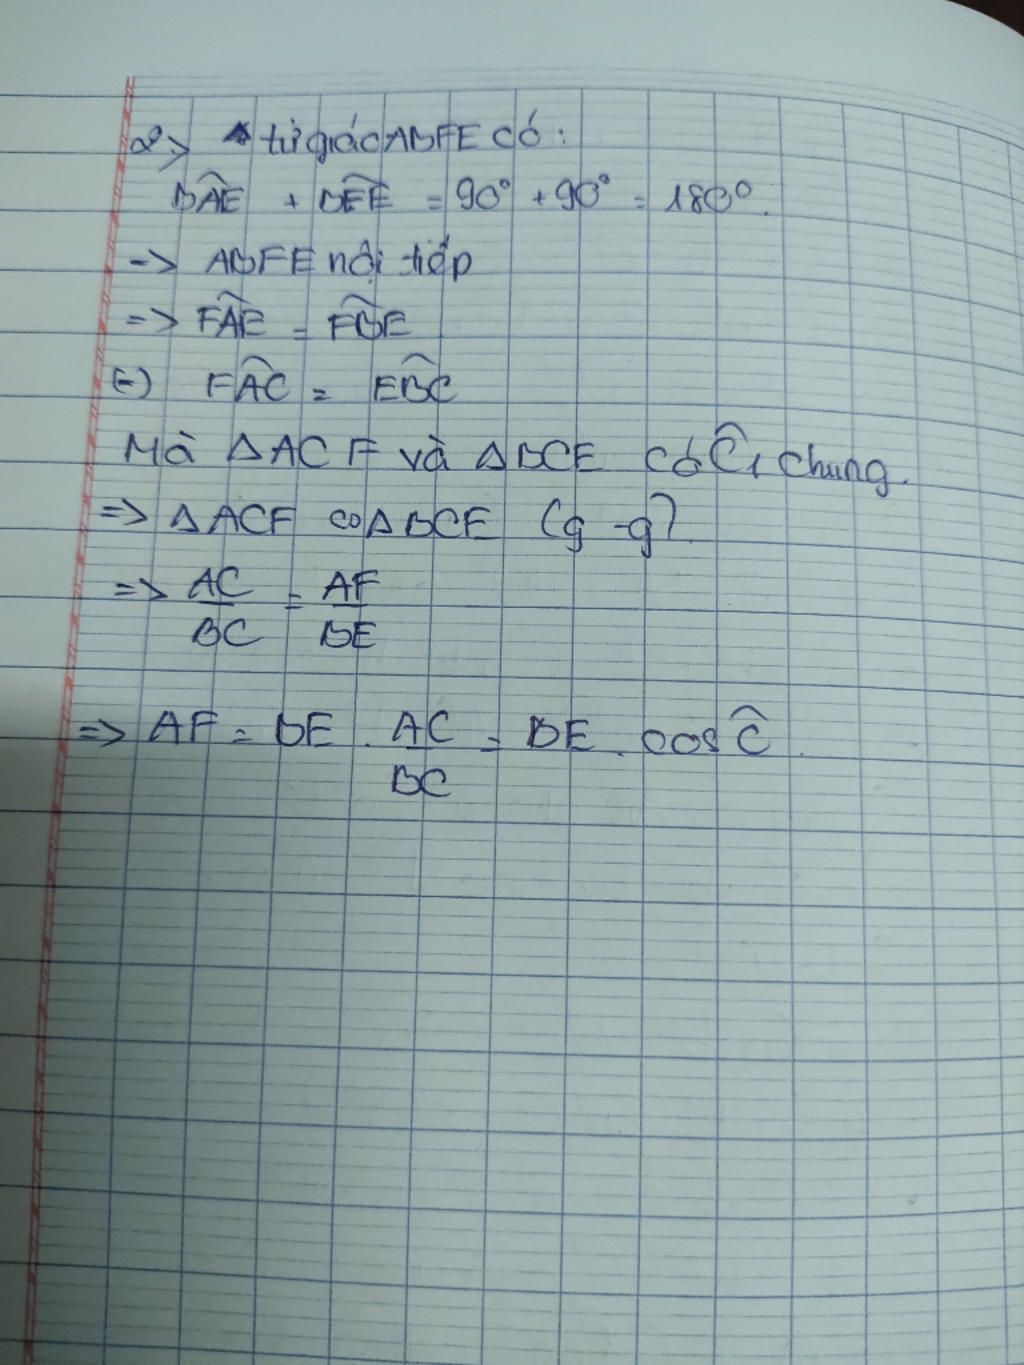 2> tứ giác ABFE có:
BAE + BFE = 90° + 90° = 180°.
=> ABFE nội tiếp
=> FAE = FBE
(=) FAC = EBC
Mà ΔACF và ΔBCE có C₁ chung.
=> ΔACF ∽ ΔBCE (g-g)
=> AC/BC = AF/BE
=> AF = BE . AC/BC = BE . cos C.